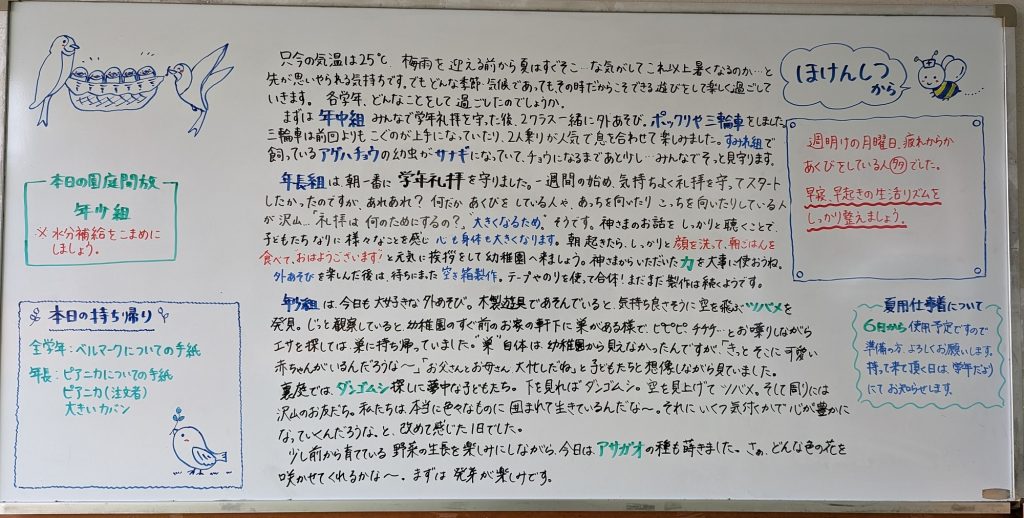 本日の園庭開放
年少組
※水分補給をこまめに
しましょう。
本日の持ち帰り
全学年：ベルマークについての手紙
年長：ピアニカについての手紙
ピアニカ（注文者）
大きいカバン
只今の気温は25℃ 梅雨を迎える前から夏はすぐそこ…な気がしてこれ以上暑くなるのか…と
先が思いやられる気持ちです。でもどんな季節・気候であっても、その時だからこそできる遊びをして楽しく過ごして
いきます。 各学年、どんなことをして過ごしたのでしょうか。
まずは年中組 みんなで学年礼拝を守った後、2クラス一緒に外あそび。ポックリや三輪車をしました。
三輪車は前回よりもこぐのが上手になっていたり、2人乗りが人気で息を合わせて楽しみました。すみれ組で
飼っているアゲハチョウの幼虫がサナギになっていて、チョウになるまであと少し…みんなでそっと見守ります。
年長組は、朝一番に学年礼拝を守りました。一週間の始め、気持ちよく礼拝を守ってスタート
したかったのですが、あれあれ？何だかあくびをしている人や、あっちを向いたりこっちを向いたりしている人
が沢山…「礼拝は何のためにするの？」"大きくなるため"そうです。神さまのお話をしっかりと聴くことで、
子どもたちなりに様々なことを感じ心も身体も大きくなります。朝起きたら、しっかりと顔を洗って、朝ごはんを
食べて、おはようございます！と元気に挨拶をして幼稚園へ来ましょう。神さまからいただいた力を大事に使おうね。
外あそびを楽しんだ後は、待ちにまった空き箱製作。テープやのりを使って合体！まだまだ製作は続くようです。
年少組は、今日も大好きな外あそび。木製遊具であそんでいると、気持ち良さそうに空を飛ぶツバメを
発見。じっと観察していると幼稚園のすぐ前のお家の軒下に巣がある様で、ピピピチチチ…とお喋りしながら
エサを探しては巣に持ち帰っていました。"巣"自体は幼稚園から見えなかったんですが、「きっとそこに可愛い
赤ちゃんがいるんだろうな〜」「お父さんとお母さん大忙しだね」と子どもたちと想像しながら見ていました。
裏庭では、ダンゴムシ探しに夢中な子どもたち。下を見ればダンゴムシ。空を見上げてツバメ。そして周りには
沢山のお友だち。私たちは、本当に色々なものに囲まれて生きているんだな〜。それにいくつ気付くかで心が豊かに
なっていくんだろうな。と、改めて感じた1日でした。
少し前から育てている野菜の生長を楽しみにしながら、今日は、アサガオの種も蒔きました。さぁ、どんな色の花を
咲かせてくれるかな〜。まずは発芽が楽しみです。
ほけんしつ
から
週明けの月曜日、疲れからか
あくびをしている人多々でした。
早寝、早起きの生活リズムを
しっかり整えましょう。
夏用仕事着について
6月から使用予定ですので
準備の方、よろしくお願いします。
持って来て頂く日は、学年だより
にてお知らせします。